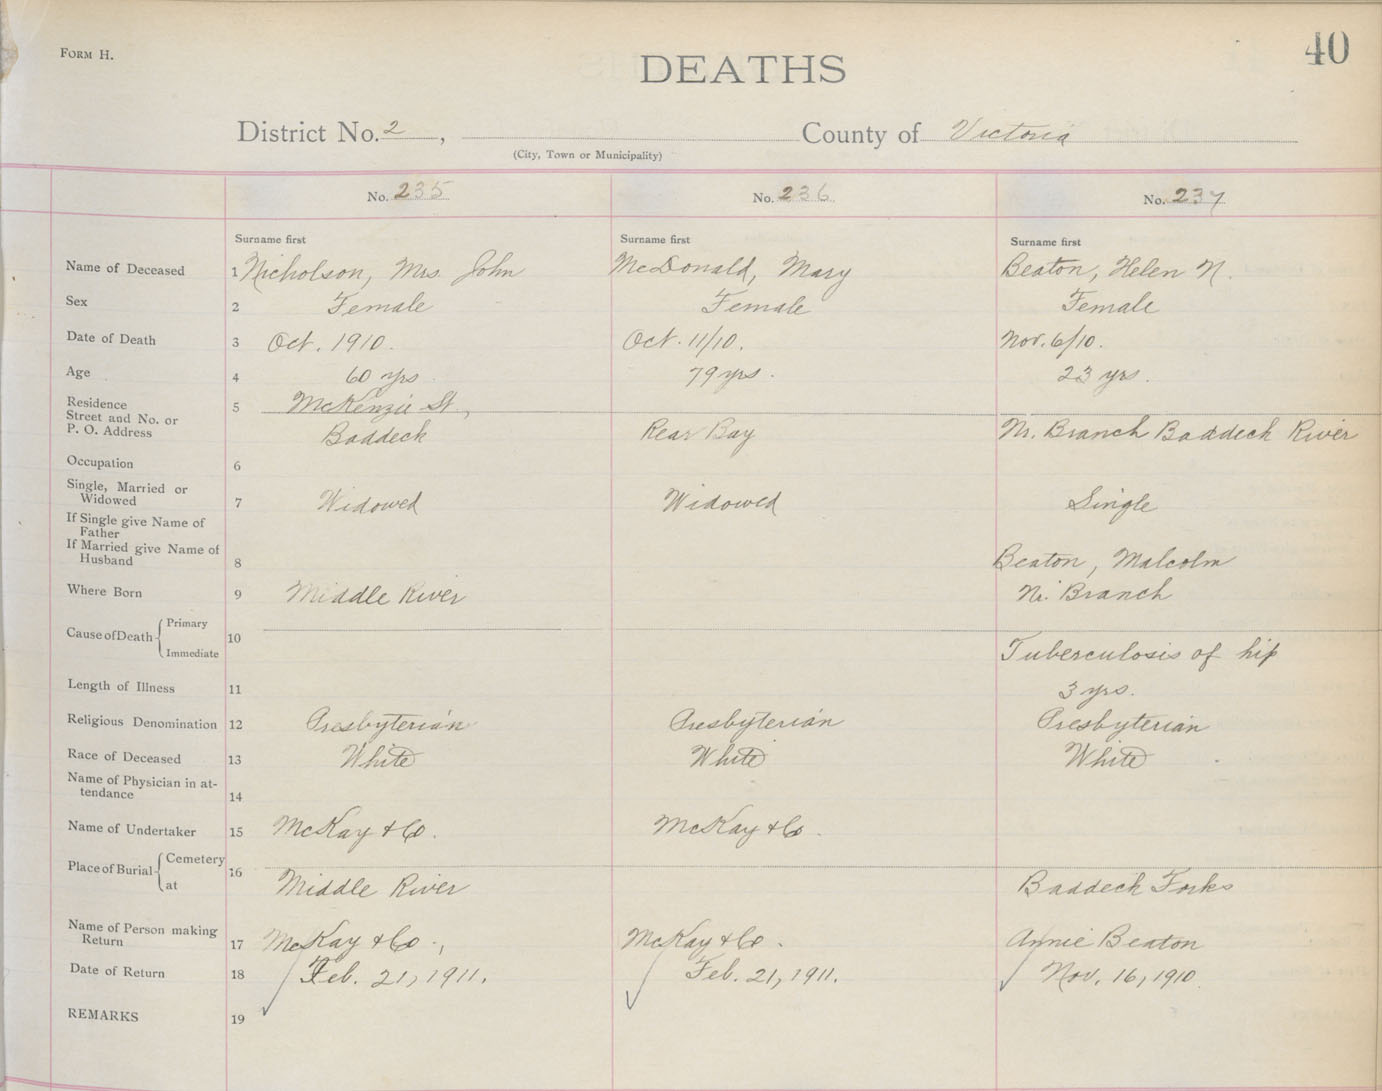 FORM H.
40
DEATHS
District No. 2 , County of Victoria
(City, Town or Municipality)
No. 235 No. 236 No. 237
Surname first Surname first Surname first
Name of Deceased 1 Nicholson, Mrs. John McDonald, Mary Beaton, Helen N.
Sex 2 Female Female Female
Date of Death 3 Oct. 1910. Oct. 11/10. Nov. 6/10.
Age 4 60 yrs. 79 yrs. 23 yrs.
Residence 5 McKenzie St.,
Street and No. or
P. O. Address Baddeck Rear Bay Nr. Branch Baddeck River
Occupation 6
Single, Married or
Widowed 7 Widowed Widowed Single
If Single give Name of
Father
If Married give Name of
Husband 8 Beaton, Malcolm
Where Born 9 Middle River Nr. Branch
Primary
Cause of Death 10
Immediate Tuberculosis of hip
Length of Illness 11 3 yrs.
Religious Denomination 12 Presbyterian Presbyterian Presbyterian
Race of Deceased 13 White White White
Name of Physician in at-
tendance 14
Name of Undertaker 15 McKay & Co. McKay & Co.
Cemetery
Place of Burial 16
at Middle River Baddeck Forks
Name of Person making
Return 17 McKay & Co., McKay & Co. Annie Beaton
Date of Return 18 Feb. 21, 1911. Feb. 21, 1911. Nov. 16, 1910.
REMARKS 19